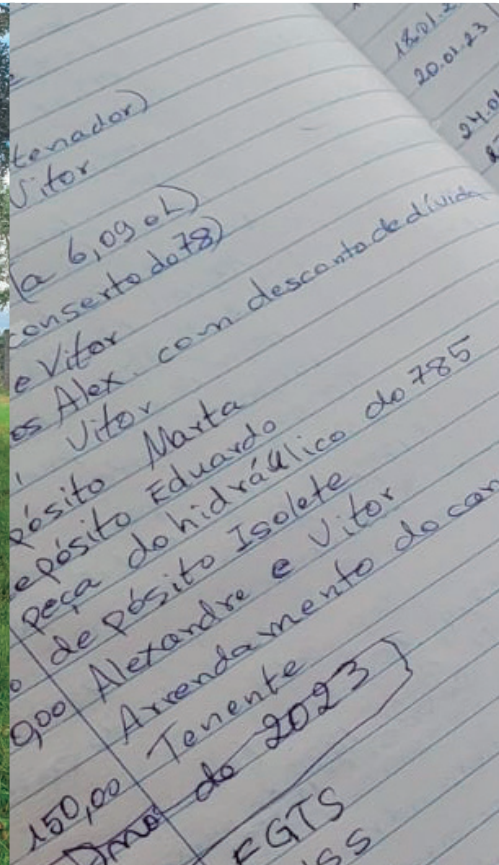 tenador)
Vitor
(a 6,09 oL)
conserto do 78)
e Vitor
os Alex. com desconto de dívida
Vitor
pósito Marta
epósito Eduardo
peça do hidráulico do 785
depósito Isolete
0,00 Alexandre e Vitor
Arrendamento do can
150,00 Tenente
Ano do 2023}
FGTS
SS
18.01.2
20.01.23
24.01